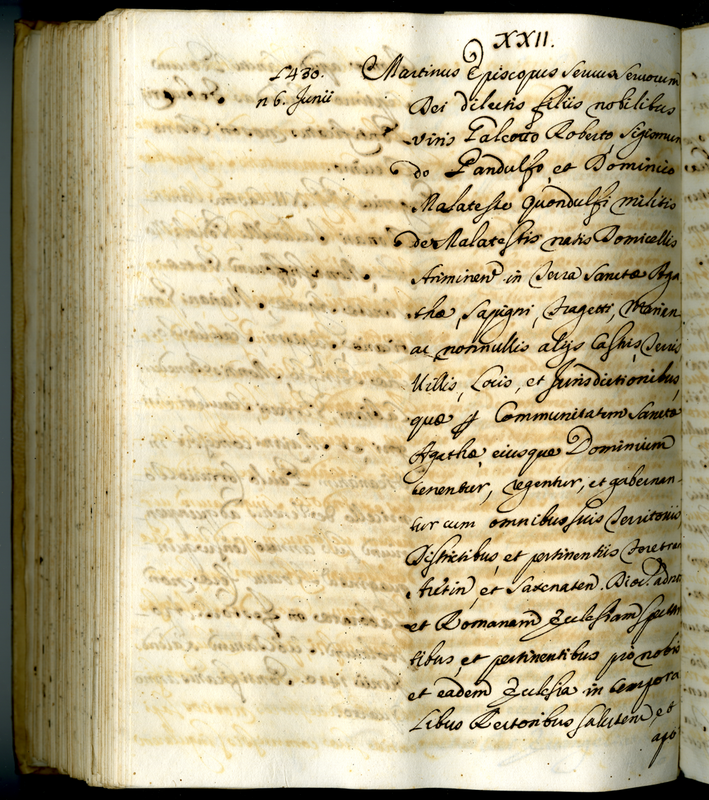 XXII.
1430.
n 6. Junii
Martinus Episcopus Servus Servorum
Dei dilectis filiis nobilibus
viris Galeotto Roberto Sigismun
do Pandulfo, et Dominico
Malateste Quondulfi militis
de Malatestis natis Domicellis
Ariminen in Terra Sanctæ Aga
thæ, Sapigni, Tragetti,
ac nonnullis alijs Castris, Terris
Villis, Locis, et Jurisdictionibus,
quæ Communitatem Sanctæ
Agathæ, eiusque Dominium
tenentur, regentur, et gubernan-
tur cum omnibus suis Territoriis
Districtibus, et pertinentiis Feretran
et Sarcnaten. Dioc. ad nos
et Romanam Ecclesiam spectan
tibus, et pertinentibus pro nobis
et eadem Ecclesia in tempora
libus Rectoribus salutem, et
apo